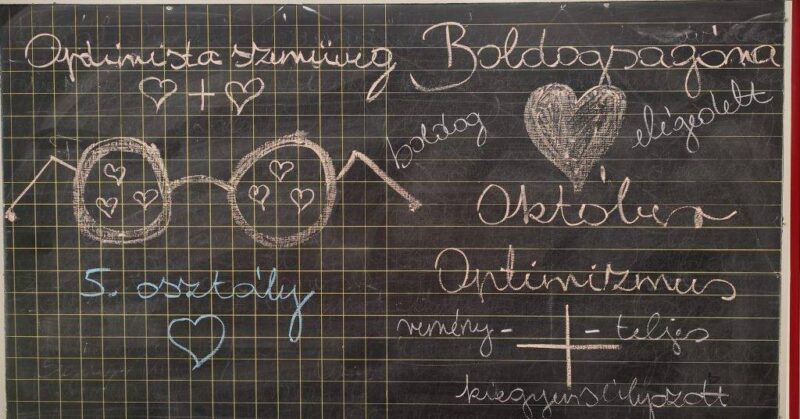 Optimista szemüveg
+
5. osztály
Boldogságóra
boldog
elégedett
Október
Optimizmus
remény- -teljes
kiegyensúlyozott